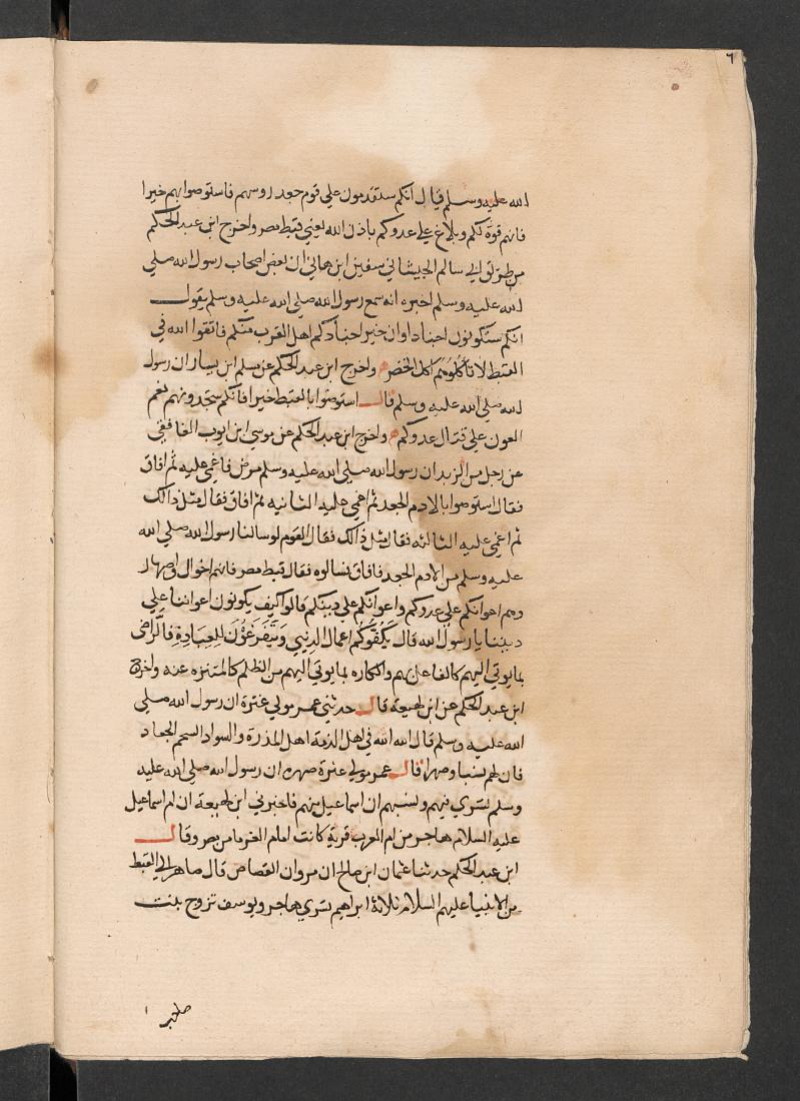 ٦
الله عليه وسلم قال انكم ستقدمون علي قوم جعد روسهم فاستوصوا بهم خيرا
فانهم قوة لكم وبلاغ علي عدوكم باذن الله يعني قبط مصر واخرج ابن عبد الحكم
من طريق ابي سالم الجيشاني سفين ابن هاني ان بعض اصحاب رسول الله صلي
الله عليه وسلم اخبره انه سمع رسول الله صلي الله عليه وسلم يقول
انكم ستكونون اجنادا وان خير اجنادكم اهل الغرب منكم فاتقوا الله في
القبط لا تاكلوهم اكل الخضر واخرج ابن عبد الحكم عن مسلم ابن يسار ان رسول
الله صلي الله عليه وسلم قال استوصوا بالقبط خيرا فانكم ستجدونهم نعم
العون علي قتال عدوكم واخرج ابن عبد الحكم عن موسي ابن ايوب الغافقي
عن رجل من الزبد ان رسول الله صلي الله عليه وسلم مرض فاغمي عليه ثم افاق
فقال استوصوا بالادم الجعد ثم اغمي عليه الثانيه ثم افاق فقال مثل ذالك
ثم اغمي عليه الثالثه فقال مثل ذالك فقال القوم لو سالنا رسول الله صلي الله
عليه وسلم من الادم الجعد فافاق فسالوه فقال قبط مصر فانهم اخوال واصهار
وهم اعوانكم علي عدوكم واعوانكم علي دينكم قالوا كيف يكونون اعواننا علي
ديننا يا رسول الله قال يكفونكم اعمال الدنيي وتتفرغون للعبادة فالراضي
بما يوتي اليهم كالفاعل بهم والكاره بما يوتي اليهم من الظلم كالمتنزه عنه واخرج
ابن عبد الحكم عن ابن لهيعة قال حدثني عمر مولي غفرة ان رسول الله صلي
الله عليه وسلم قال الله الله في اهل الذمة اهل المدرة والسواد السحم الجعاد
فان لهم نسبا وصهرا قال عمر مولي غفرة صهره ان رسول الله صلي الله عليه
وسلم تسري فيهم ونسبهم ان اسماعيل منهم فاخبرني ابن لهيعة ان ام اسماعيل
عليه السلام هاجر من ام العرب قرية كانت امام الفرما من مصر وقال
ابن عبد الحكم حدثنا عثمان ابن صالح ان مروان القصاص قال صاهر الي القبط
من الانبيا عليهم السلام ثلاثة ابراهيم تسري هاجر ويوسف تزوج بنت
صاحب